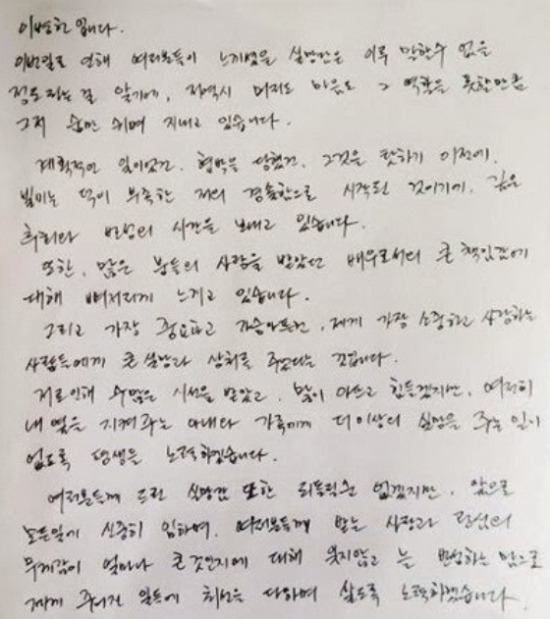 이병헌 입니다.
이번일로 인해 여러분들이 느끼셨을 실망감은 이루 말할수 없을
정도라는걸 알기에, 저역시 머리도 마음도 그 역할을 못할만큼
그저 숨만 쉬며 지내고 있습니다.
계획적인 일이었건, 협박을 당했건, 그것을 탓하기 이전에,
빌미는 덕이 부족한 저의 경솔함으로 시작된 것이기에, 깊은
후회와 반성의 시간을 보내고 있습니다.
또한, 많은 분들의 사랑을 받았던 배우로서의 큰 책임감에
대해 뼈저리게 느끼고 있습니다.
그리고 가장 중요하고 가슴아프건, 제게 가장 소중하고 사랑하는
사람들에게 큰 실망과 상처를 주었다는 것입니다.
저로인해 수많은 시선을 받았고, 많이 아프고 힘들겠지만, 여전히
내 옆을 지켜주는 아내와 가족에게 더이상의 실망을 주는 일이
없도록 평생을 노력하겠습니다.
여러분들께 드린 실망감 또한 되돌릴순 없겠지만, 앞으로
모든일에 신중히 임하며, 여러분들께 받는 사랑과 관심의
무게감이 얼마나 큰 것인지에 대해 잊지않고 늘 반성하는 맘으로
제게 주어진 일들에 최선을 다하며 살도록 노력하겠습니다.